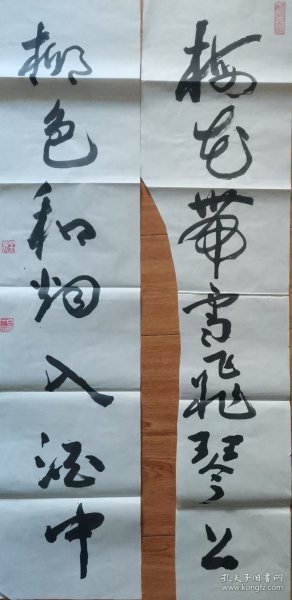 梅花带雪飞琴上
柳色和烟入酒中
孔夫子旧书网
www.kongfz.com